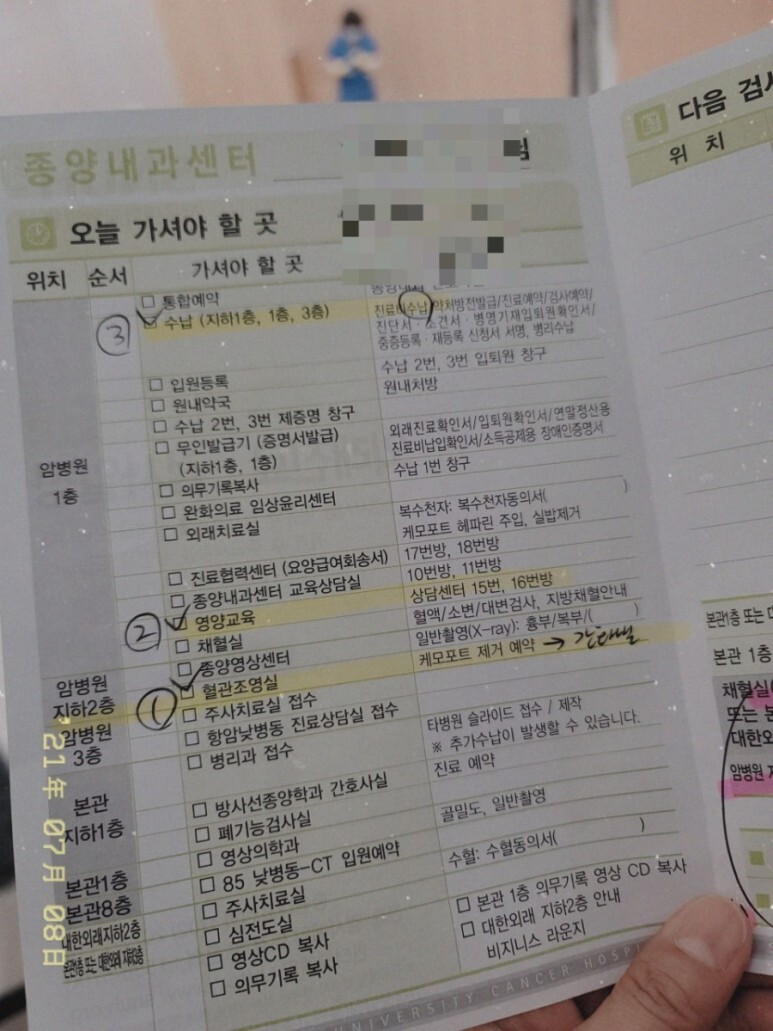 종양내과센터
오늘 가셔야 할 곳
위치 순서 가셔야 할 곳
통합예약
③ 수납 (지하1층, 1층, 3층) 진료비수납/약처방전발급/진료예약/검사예약/
진단서·소견서·병명기재입퇴원확인서/
중증등록·재등록 신청서 서명, 병리수납
입원등록 수납 2번, 3번 입퇴원 창구
원내약국 원내처방
수납 2번, 3번 제증명 창구
무인발급기 (증명서발급) 외래진료확인서/입퇴원확인서/연말정산용
(지하1층, 1층) 진료비납입확인서/소득공제용 장애인증명서
암병원
1층
의무기록복사 수납 1번 창구
완화의료 임상윤리센터
외래치료실 복수천자: 복수천자동의서( )
케모포트 헤파린 주입, 실밥제거
진료협력센터 (요양급여회송서) 17번방, 18번방
종양내과센터 교육상담실 10번방, 11번방
② 영양교육 상담센터 15번, 16번방
채혈실 혈액/소변/대변검사, 지방채혈안내
종양영상센터 일반촬영(X-ray): 흉부/복부/( )
암병원
지하2층
① 혈관조영실 케모포트 제거 예약 →
주사치료실 접수
암병원
3층
항암낮병동 진료상담실 접수
병리과 접수 타병원 슬라이드 접수 / 제작
※ 추가수납이 발생할 수 있습니다.
본관
지하1층
방사선종양학과 간호사실 진료 예약
폐기능검사실
영상의학과 골밀도, 일반촬영
본관1층 85 낮병동-CT 입원예약
본관8층 주사치료실 수혈: 수혈동의서( )
대한외래 지하2층 심전도실
본관1층 또는 대한외래 지하2층 영상CD 복사 본관 1층 의무기록 영상 CD 복사
의무기록 복사 대한외래 지하2층 안내
비지니스 라운지
UNIVERSITY CANCER HOSPI
다음 검사
위치
본관1층 또는 대
본관 1층
채혈실(
또는 본
대한외
암병원 지
'21年 07月 08日